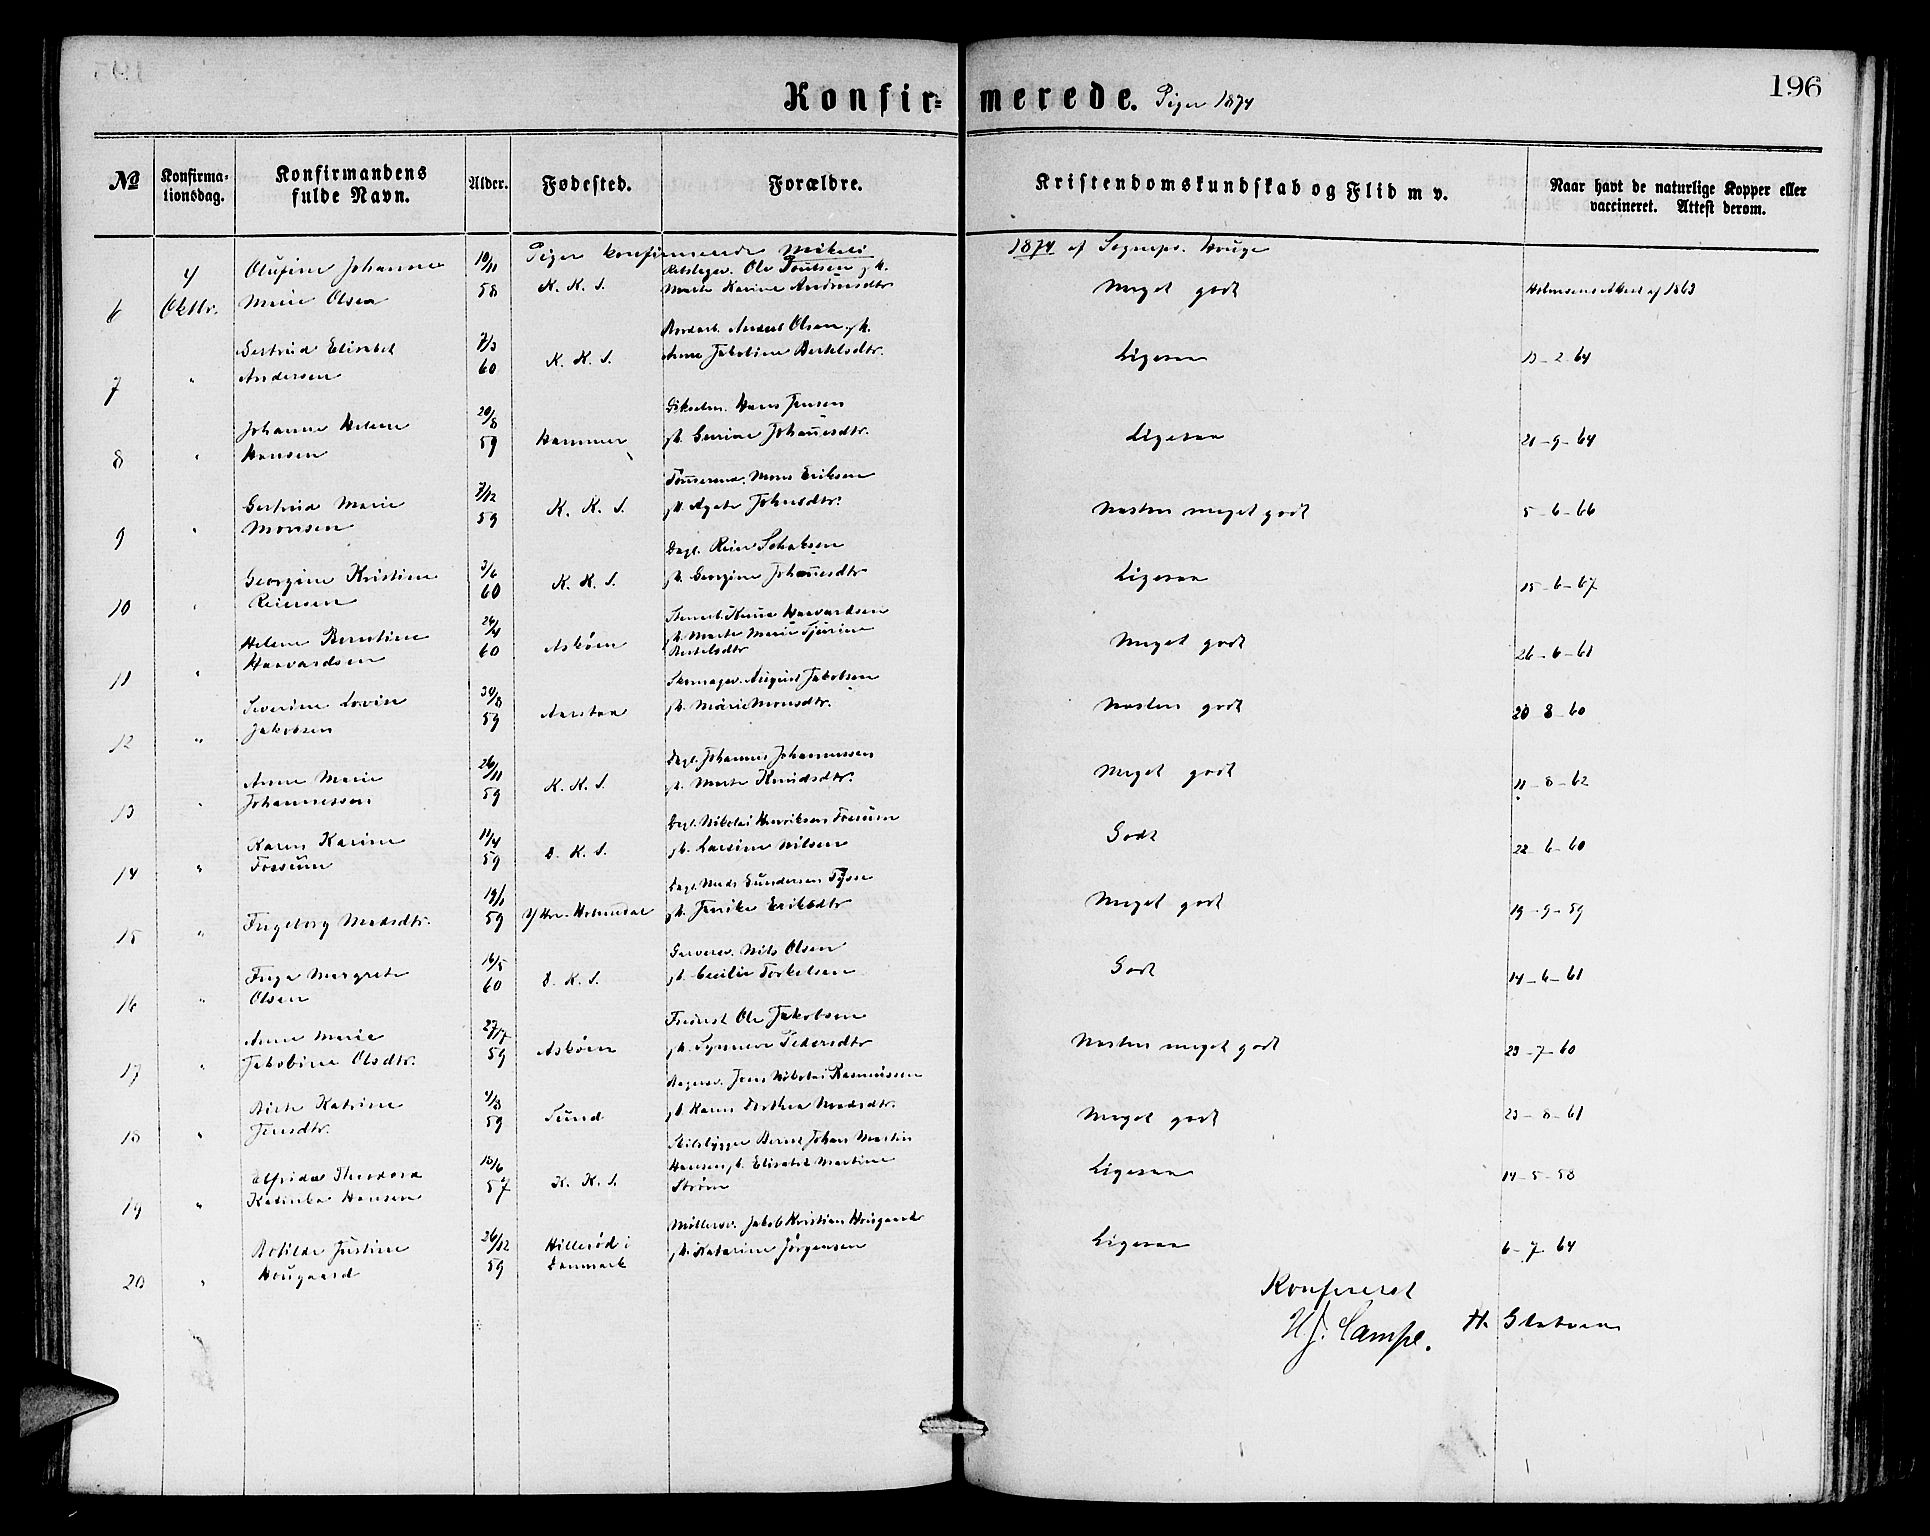 Konfirmerede. Piger 1874
196
No
Konfirmationsdag.
Konfirmandens fulde Navn.
Alder.
Fødested.
Forældre.
Kristendomskundskab og Flid m v.
Naar havt de naturlige Kopper eller vaccineret. Attest derom.
Piger konfirmerede Mikeli 1874 af Sognepr. Houge
6 4 Oktbr. Olufine Johanne Marie Olsen 10/11 58 K. K. S. Ole Poulsen g. h. Marte Karine Andreasdtr Meget godt Attest af 1863
7 " Gertrud Elisabet Andersen 7/3 60 K. K. S. Anders Olsen g. h. Anne Jakobine Bertelsdtr. Ligesaa 13-2-64
8 " Johanne Helene Hansen 20/8 59 Hammer Hans Jensen g. h. Johannesdtr. Ligesaa 21-9-64
9 " Gertrud Marie Monsen 7/12 59 K. K. S. Mons Eriksen g. h. Agate Johnsdtr. Næsten meget godt 5-6-66
10 " Georgine Kristine Reiersen 3/6 60 K. K. S. Dagl. Reier g. h. Georgine Johannesdtr Ligesaa 15-6-67
11 " Helene Berntine Haavardsen 26/4 60 Askøen Haavardsen g. h. Marte Marie Sjurine Bertelsdtr Meget godt 26-6-61
12 " Severine Lovise Jakobsen 30/8 59 Aarstad Skomager. August Jakobsen g. h. Marie Monsdtr. Næsten godt 20-8-60
13 " Anne Marie Johannessen 26/11 59 K. K. S. Dagl. Johannes Johannessen g. h. Marte Knudsdtr. Meget godt 11-8-62
14 " Karen Karine Fossum 11/4 59 D. K. S. Dagl. Nikolai Henriksen Fossum g. h. Larsine Nilsen Godt 22-6-60
15 " Ingeborg Madsdtr. 19/1 59 Y. Holmedal Dagl. Mads Gundersen Tysse g. h. Jenike Eriksdtr Meget godt 19-9-59
16 " Inga Margrete Olsen 16/5 60 D. K. S. Garversv. Nils Olsen g. h. Cecilie Torkelsen Godt 14-6-61
17 " Anne Marie Jakobine Olsdtr. 27/7 59 Askøen Ole Jakobsen g. h. Synneve Pedersdtr Næsten meget godt 23-7-60
18 " Birte Katrine Jensdtr. 59 Sund Jens Nikolai Rasmussen g. h. Karen Dorthea Madsdtr. Meget godt 23-8-61
19 " Alfrida Theodora Katinka Hansen 18/6 57 K. K. S. Skibsbygger Bernt Johan Martin Hansen g. h. Elisabet Martine Strøm Ligesaa 14-5-58
20 " Botilde Justine Hougaard 26/12 59 Hillerød i Danmark Møllersv. Jakob Kristian Hougaard g. h. Katarine Jørgensen Ligesaa 6-7-64
Konfereret
H. J. Campe.
H.